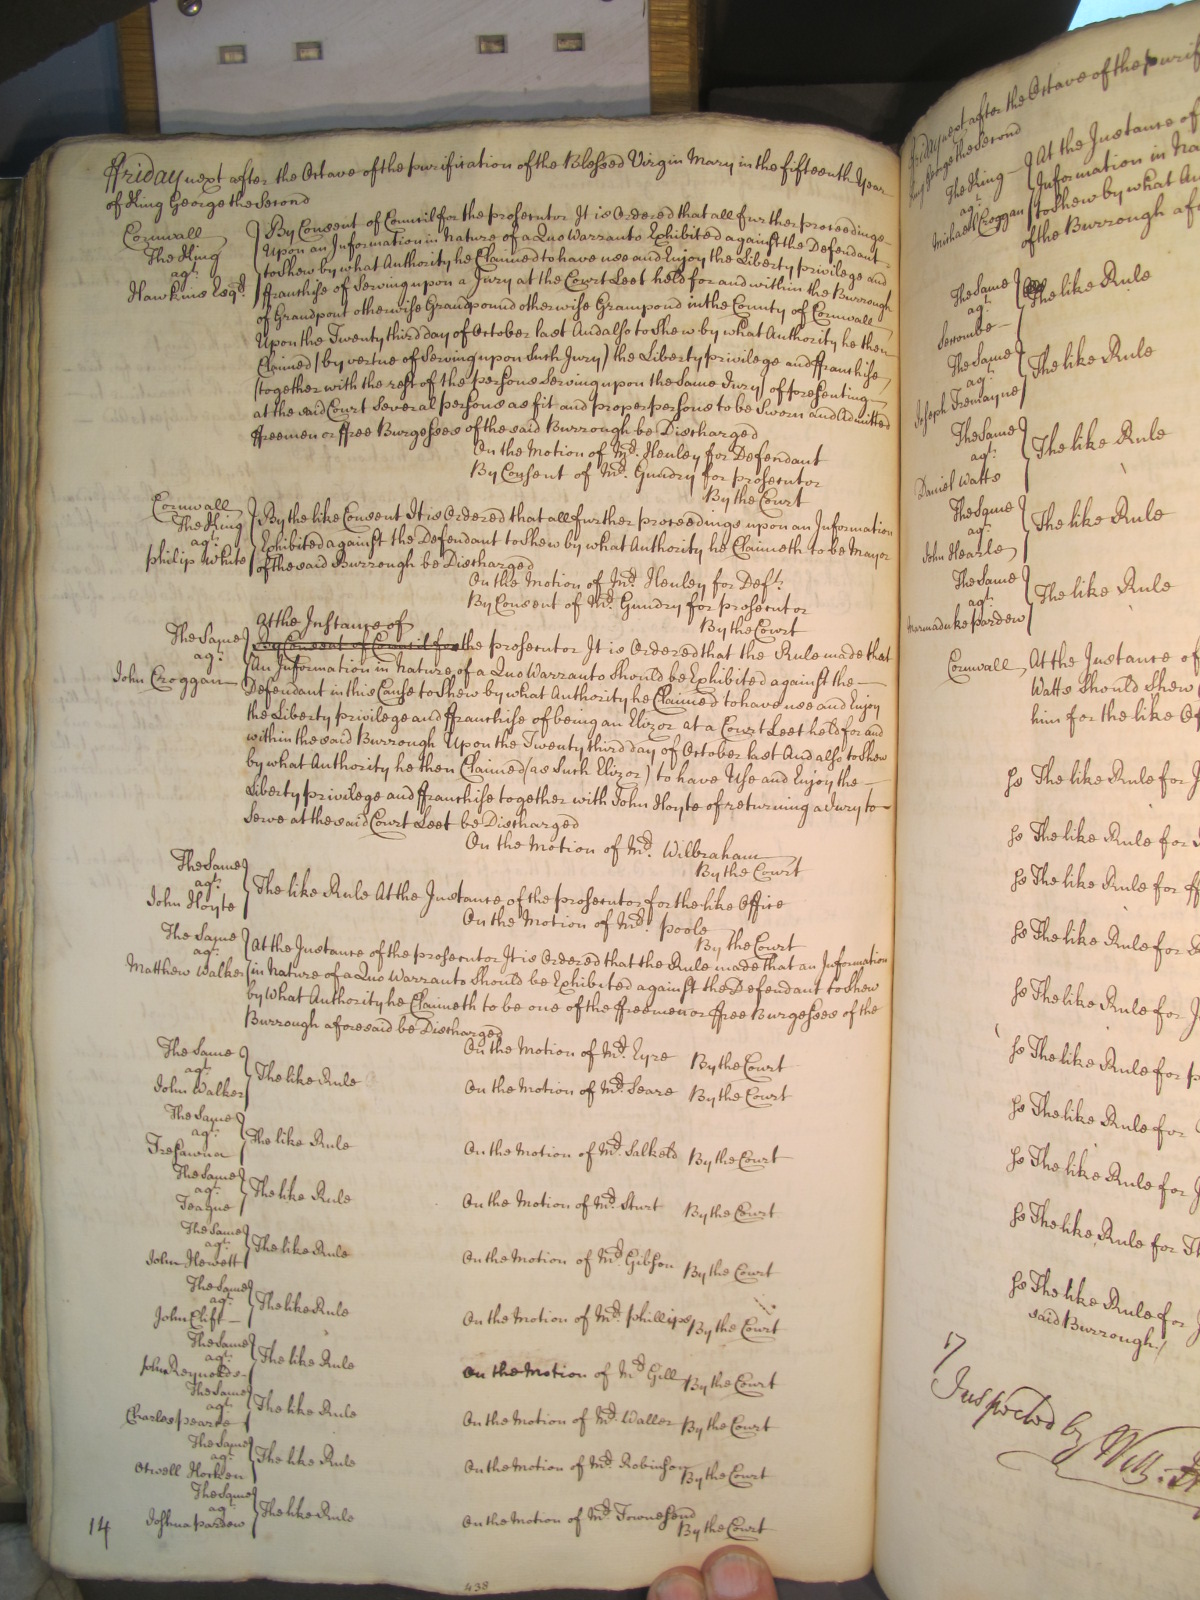 Friday next after the Octave of the purification of the Blessed Virgin Mary in the fifteenth Year
of King George the Second
Cornwall
The King
agt.
Hawkins Esqr.
By Consent of Council for the prosecutor It is Ordered that all further proceedings
Upon an Information in Nature of a Quo Warranto Exhibited against the Defendant
to Shew by what Authority he Claimed to have use and Enjoy the Liberty privilege and
ffranchise of Serving upon a Jury at the Court Leet held for and within the Burrough
of Grandpont otherwise Grandpound otherwise Grampond in the County of Cornwall
Upon the Twenty third day of October last And also to Shew by what Authority he then
Claimed (by vertue of Serving upon Such Jury) the Liberty privilege and ffranchise
(together with the rest of the persons Serving upon the Same Jury) of presenting
at the said Court Several persons as fit and proper persons to be Sworn and Admitted
ffreemen or ffree Burgesses of the said Burrough be Discharged
On the Motion of Mr. Henley for Defendant
By Consent of Mr. Gundry for prosecutor
By the Court
Cornwall
The King
agt.
philip White
By the like Consent It is Ordered that all further proceedings upon an Information
Exhibited against the Defendant to Shew by what Authority he Claimeth to be Mayor
of the said Burrough be Discharged
On the Motion of Mr. Henley for Deft.
By Consent of Mr. Gundry for prosecutor
By the Court
At the Instance of
The Same
agt.
John Croggan
By Consent of Council for the prosecutor It is Ordered that the Rule made that
An Information in Nature of a Quo Warranto Should be Exhibited against the
Defendant in this Cause to Shew by what Authority he Claimed to have use and Enjoy
the Liberty privilege and ffranchise of being an Elizor at a Court Leet held for and
within the said Burrough Upon the Twenty third day of October last And also to Shew
by what Authority he then Claimed (as Such Elizor) to have Use and Enjoy the
Liberty privilege and ffranchise together with John Hoyte of returning a Jury to
Serve at the said Court Leet be Discharged
On the Motion of Mr. Wilbraham
By the Court
The Same
agt.
John Hoyte
The like Rule At the Instance of the prosecutor for the like Office
On the Motion of Mr. poole
By the Court
The Same
agt.
Matthew Walker
At the Instance of the prosecutor It is Ordered that the Rule made that an Information
in Nature of a Quo Warranto Should be Exhibited against the Defendant to Shew
by What Authority he Claimeth to be one of the ffreemen or ffree Burgesses of the
Burrough aforesaid be Discharged
On the Motion of Mr. Eyre By the Court
The Same
agt.
John Walker
The like Rule
On the Motion of Mr. Seare By the Court
The Same
agt.
The like Rule
On the Motion of Mr. Salkeld By the Court
The Same
agt.
Teague
The like Rule
On the Motion of Mr. Sturt By the Court
The Same
agt.
John Hewett
The like Rule
On the Motion of Mr. Gibson By the Court
The Same
agt.
John Clift
The like Rule
On the Motion of Mr. phillips By the Court
The Same
agt.
John Reynolds
The like Rule
On the Motion of Mr. Gill By the Court
The Same
agt.
Charles pearse
The like Rule
On the Motion of Mr. Waller By the Court
The Same
agt.
Otwell Hocken
The like Rule
On the Motion of Mr. Robinson By the Court
The Same
agt.
Joshua pardew
The like Rule
On the Motion of Mr. Townesend
By the Court
14
438
Friday next after the Octave of the purif
King George the Second
The King
agt.
Michael Croggan
At the Instance of
Information in Na
to Shew by what Au
of the Burrough afo
The Same
agt.
Secombe
The like Rule
The Same
agt.
Joseph Tremayne
The like Rule
The Same
agt.
Daniel Watts
The like Rule
The Same
agt.
John Hearle
The like Rule
The Same
agt.
Marmaduke pardew
The like Rule
Cornwall
At the Instance of
Watts Should Shew
him for the like Of
The like Rule for J
The like Rule for
The like Rule for ff
The like Rule for
The like Rule for J
The like Rule for p
The like Rule for
The like Rule for J
The like Rule for Th
The like Rule for J
said Burrough
17
Inspected by Will: